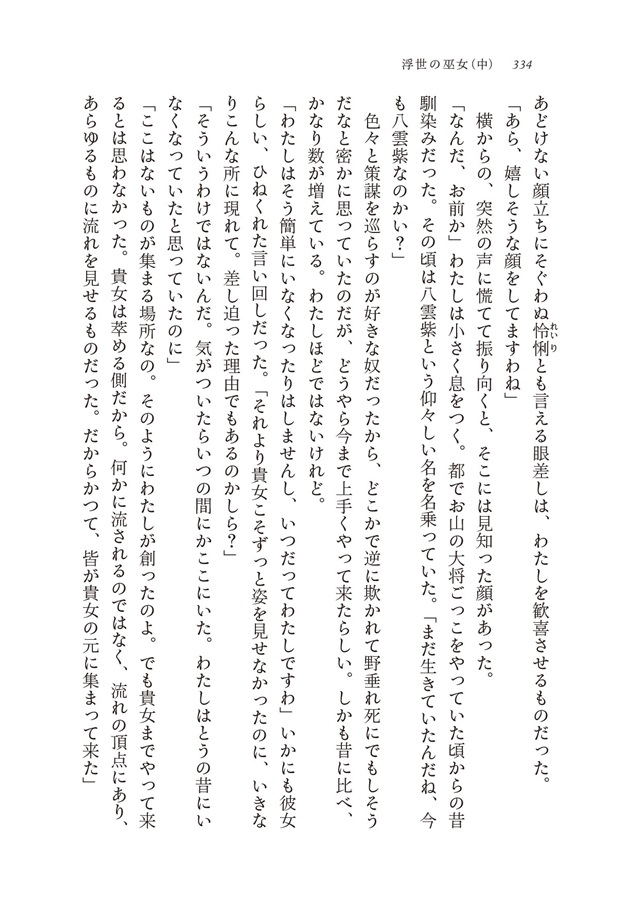 浮世の巫女(中) 334
あどけない顔立ちにそぐわぬ怜悧とも言える眼差しは、わたしを歓喜させるものだった。
れいり
「あら、嬉しそうな顔をしてますわね」
横からの、突然の声に慌てて振り向くと、そこには見知った顔があった。
「なんだ、お前か」わたしは小さく息をつく。都でお山の大将ごっこをやっていた頃からの昔
馴染みだった。その頃は八雲紫という仰々しい名を名乗っていた。「まだ生きていたんだね、今
も八雲紫なのかい?」
色々と策謀を巡らすのが好きな奴だったから、どこかで逆に欺かれて野垂れ死にでもしそう
だなと密かに思っていたのだが、どうやら今まで上手くやって来たらしい。しかも昔に比べ、
かなり数が増えている。わたしほどではないけれど。
「わたしはそう簡単にいなくなったりはしませんし、いつだってわたしですわ」いかにも彼女
らしい、ひねくれた言い回しだった。「それより貴女こそずっと姿を見せなかったのに、いきな
りこんな所に現れて。差し迫った理由でもあるのかしら?」
「そういうわけではないんだ。気がついたらいつの間にかここにいた。わたしはとうの昔にい
なくなっていたと思っていたのに」
「ここはないものが集まる場所なの。そのようにわたしが創ったのよ。でも貴女までやって来
るとは思わなかった。貴女は萃める側だから。何かに流されるのではなく、流れの頂点にあり、
あらゆるものに流れを見せるものだった。だからかつて、皆が貴女の元に集まって来た」